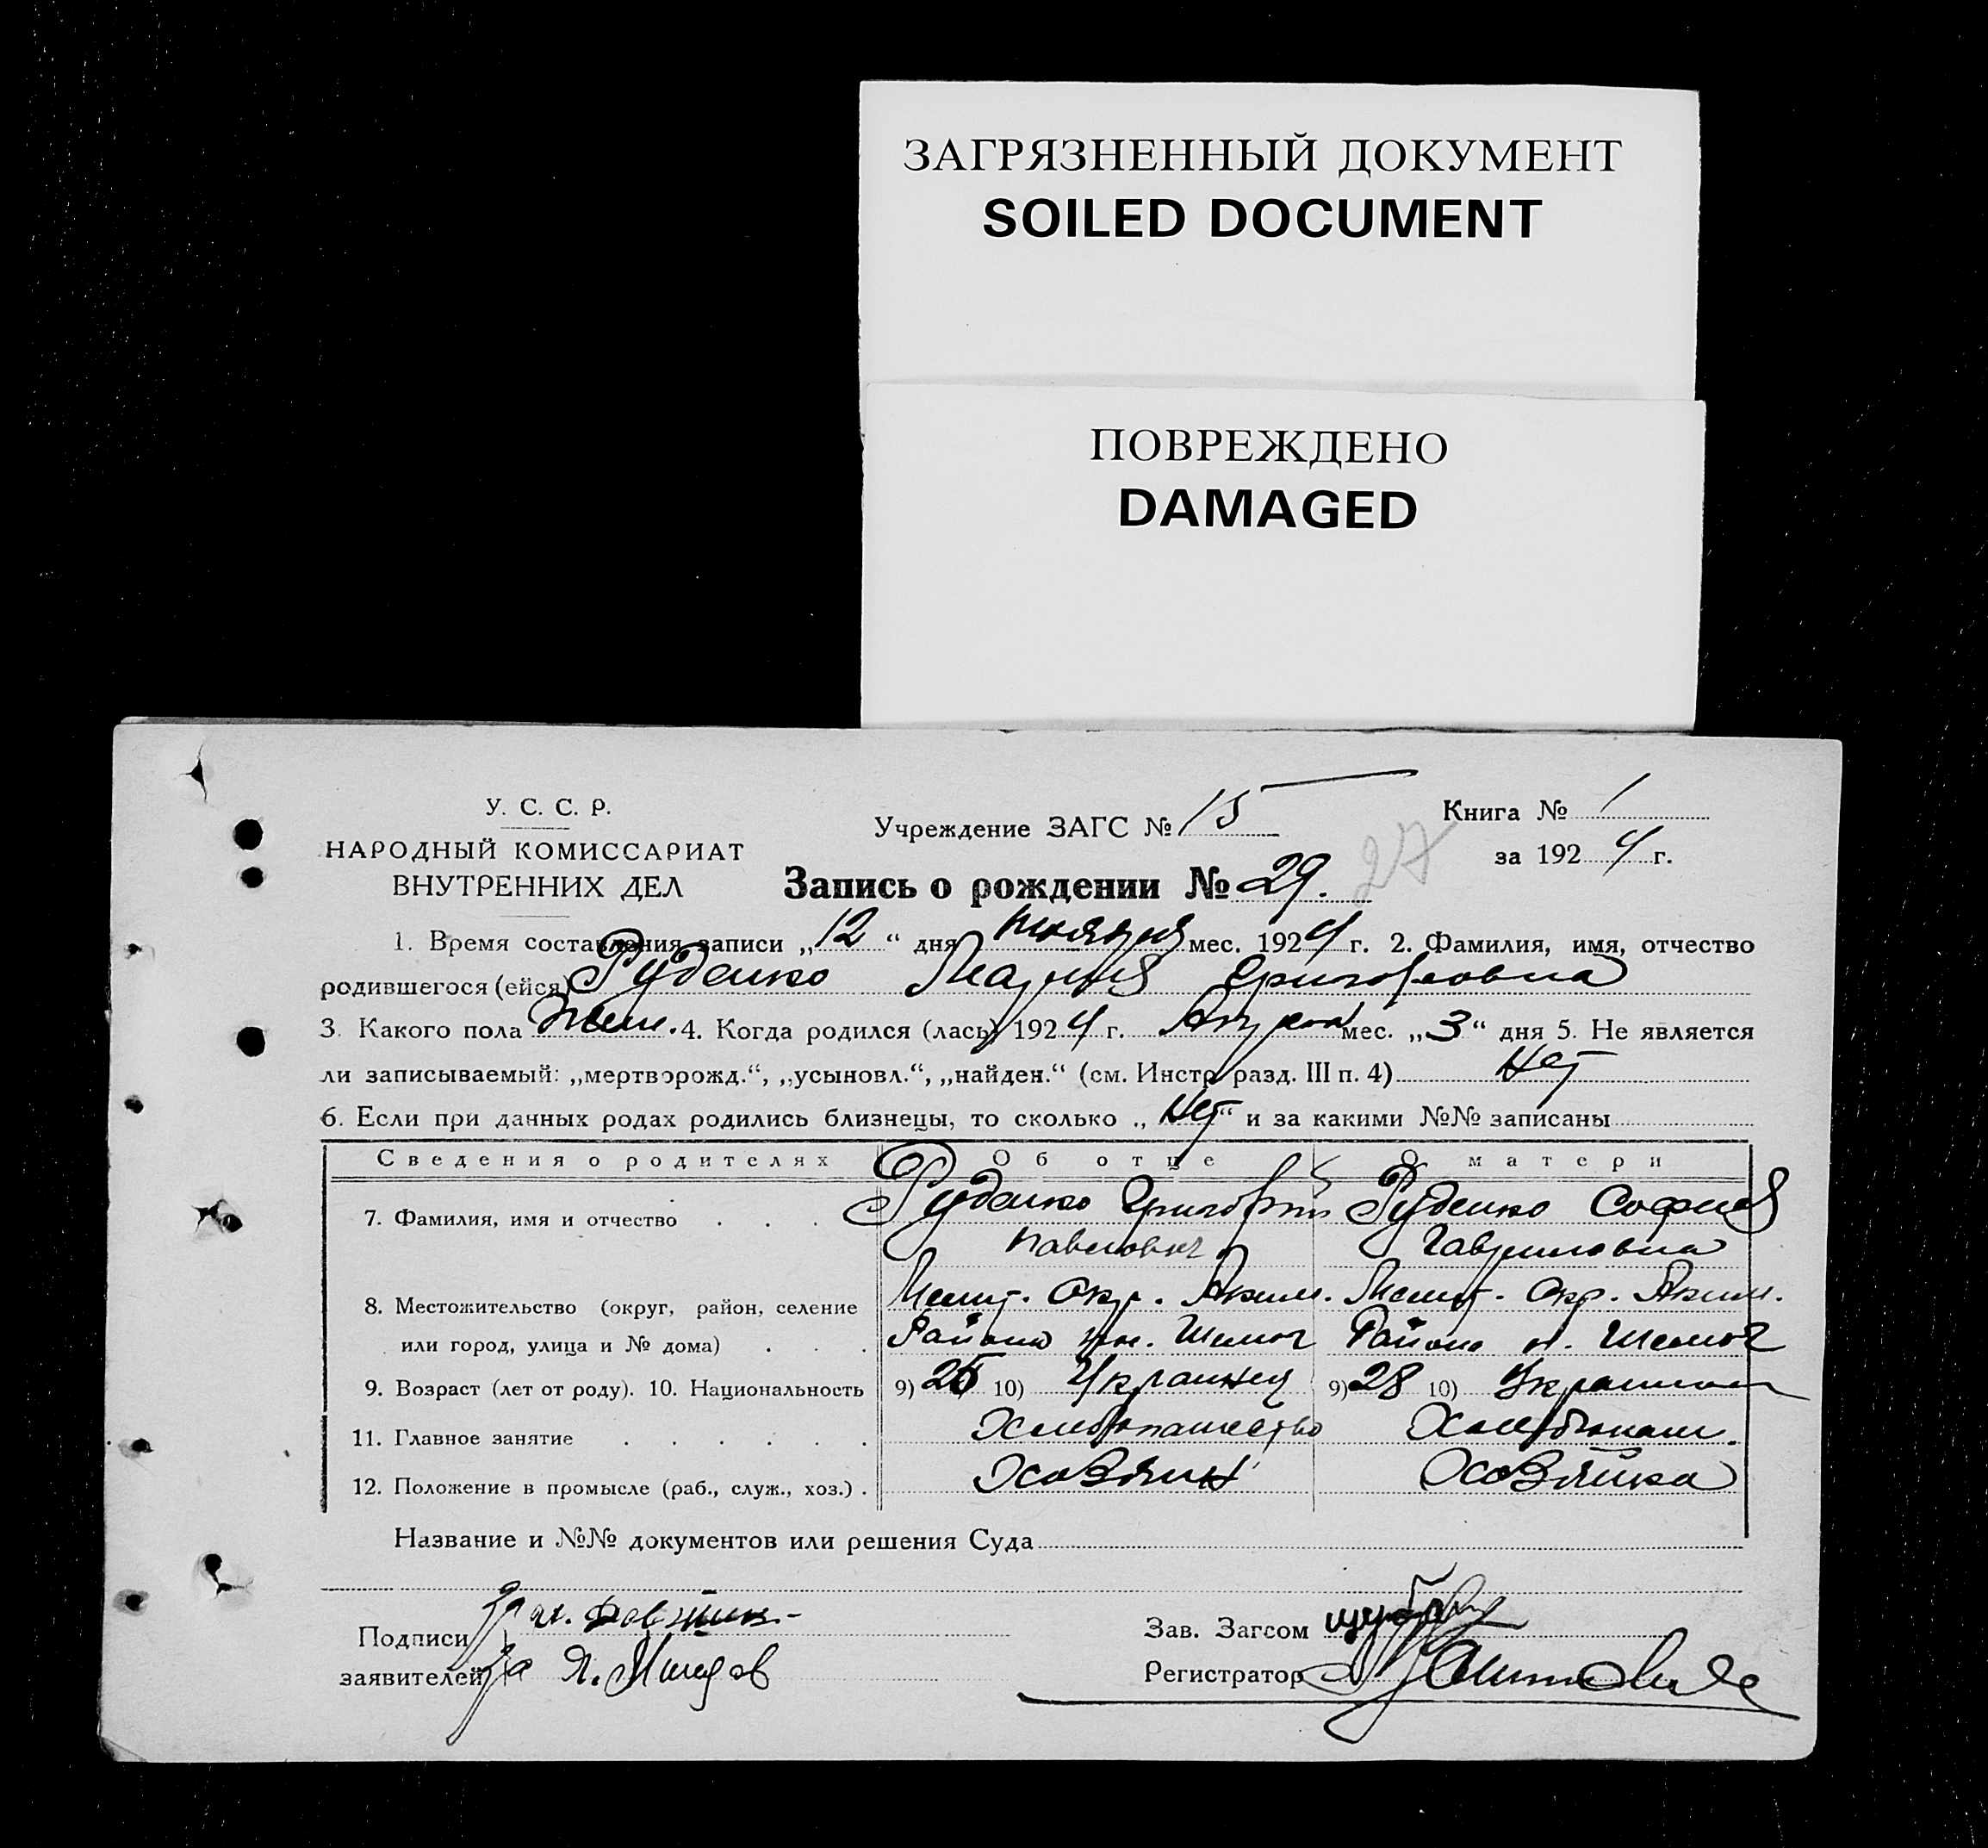 ЗАГРЯЗНЕННЫЙ ДОКУМЕНТ
SOILED DOCUMENT
ПОВРЕЖДЕНО
DAMAGED
У. С. С. Р.
НАРОДНЫЙ КОМИССАРИАТ
ВНУТРЕННИХ ДЕЛ
Учреждение ЗАГС № 15
Книга № 1
за 1924 г.
Запись о рождении № 29. 27
1. Время составления записи „12“ дня мес. 1924 г. 2. Фамилия, имя, отчество
родившегося (ейся) Руденко Мария Григорьевна
3. Какого пола Жен. 4. Когда родился (лась) 1924 г. мес. „3“ дня 5. Не является
ли записываемый: „мертворожд.“, „усыновл.“, „найден.“ (см. Инстр. разд. III п. 4) Нет
6. Если при данных родах родились близнецы, то сколько „Нет“ и за какими №№ записаны
Сведения о родителях Об отце О матери
7. Фамилия, имя и отчество Руденко Григорий Руденко София
Павлович Гавриловна
8. Местожительство (округ, район, селение Мелит. Окр. Аким. Мелит. Окр. Аким.
или город, улица и № дома) Района Района
9. Возраст (лет от роду). 10. Национальность 9) 26 10) Украинец 9) 28 10) Украинка
11. Главное занятие Хлебопашество Хлебопаш.
12. Положение в промысле (раб., служ., хоз.) Хозяин Хозяйка
Название и №№ документов или решения Суда
Подписи За
заявителей За
Зав. Загсом
Регистратор